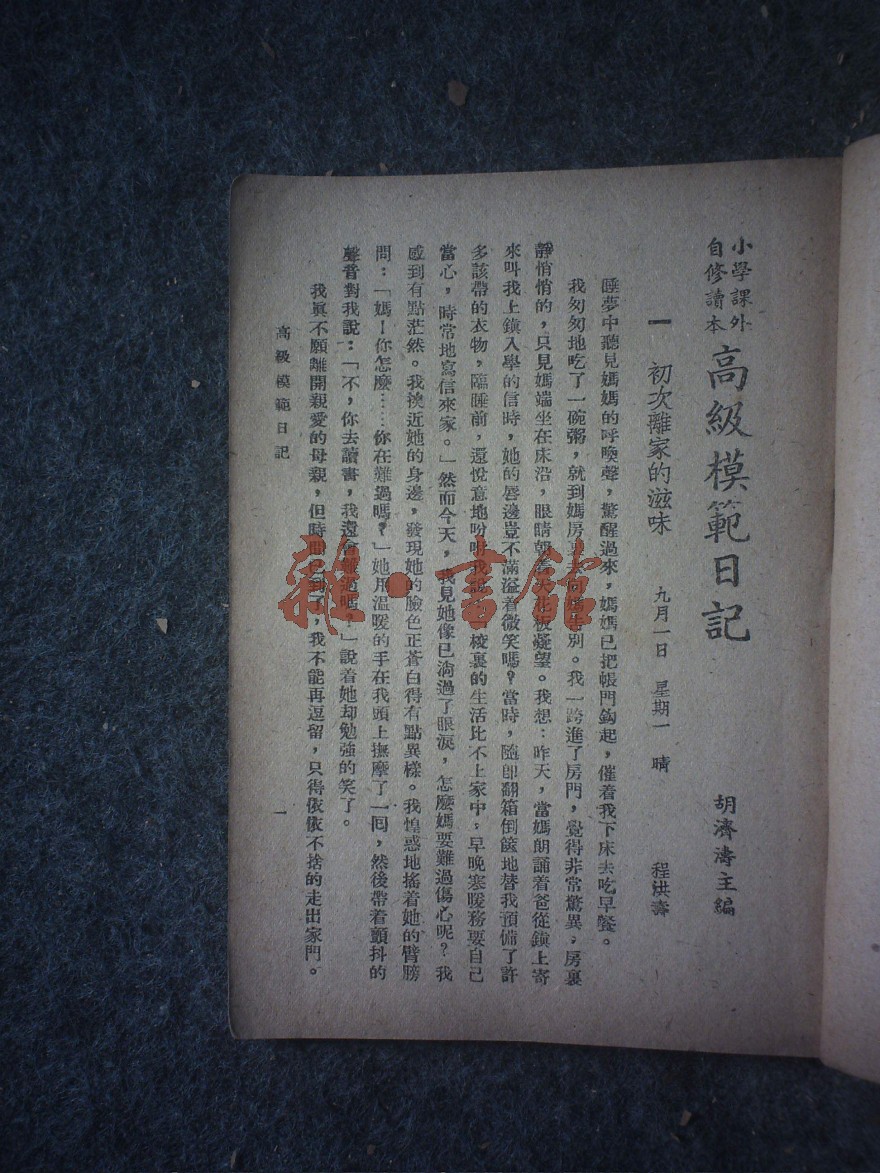 小學課外
自修讀本
高級模範日記
胡濟濤主編
一 初次離家的滋味 九月一日 星期一 晴 程洪壽
睡夢中聽見媽媽的呼喚聲，驚醒過來，媽媽已把帳門鈎起，催着我下床去吃早餐。
我匆匆地吃了一碗粥，就到媽房裏去向媽告別。我一跨進了房門，覺得非常驚異，房裏
靜悄悄的，只見媽端坐在床沿，眼睛朝着天花板凝望。我想：昨天，當媽朗誦着爸從鎮上寄
來叫我上鎮入學的信時，她的唇邊豈不滿溢着微笑嗎？當時，隨卽翻箱倒篋地替我預備了許
多該帶的衣物，臨睡前，還悅意地吩咐我說：「校裏的生活比不上家中，早晚寒暖務要自己
當心，時常地寫信來家。」然而今天，我見她像已淌過了眼淚，怎麼媽要難過傷心呢？我
感到有點茫然。我挨近她的身邊，發現她的臉色正蒼白得有點異樣。我惶惑地搖着她的臂膀
問：「媽！你怎麼……你在難過嗎？」她用溫暖的手在我頭上撫摩了一囘，然後帶着顫抖的
聲音對我說：「不，你去讀書，我還會難過嗎？」說着她却勉強的笑了。
我眞不願離開親愛的母親，但時間已到了，我不能再逗留，只得依依不捨的走出家門。
高級模範日記
一
雜·書館